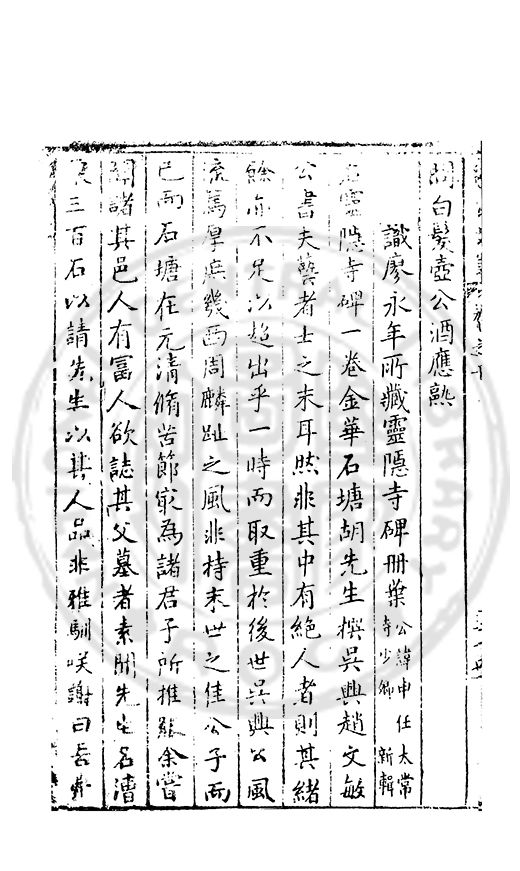 閒白髮壺公酒應熟
識廖永年所藏靈隱寺碑冊葉公諱申任太常寺少卿新輯
靈隱寺碑一卷金華石塘胡先生撰吳興趙文敏
公書夫藝者士之末耳然非其中有絕人者則其緒
餘亦不足以超出乎一時而取重於後世吳興公風
流篤厚庶幾西周麟趾之風非特末世之佳公子而
已而石塘在元清脩苦節最為諸君子所推級余嘗
聞諸其邑人有富人欲誌其父墓者素聞先生名漕
三百石以請先生以其人品非雅馴咲謝曰吾